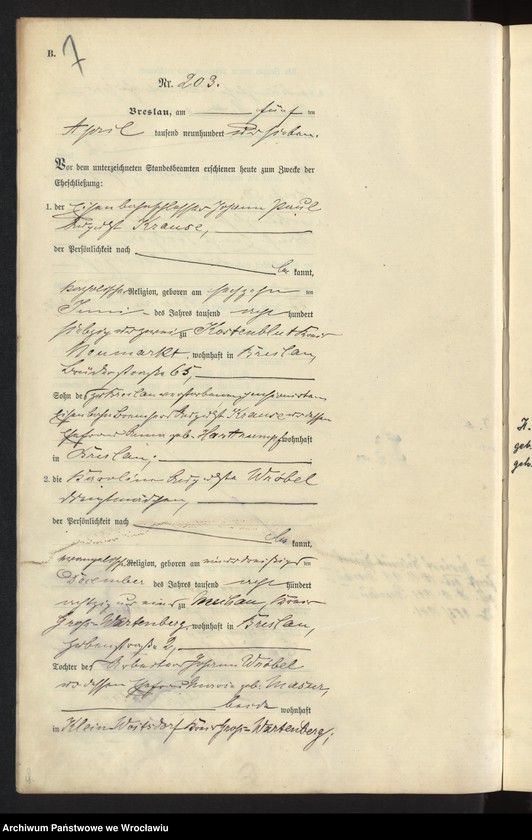 B.
7
Nr. 203.
Breslau, am fünf ten
April tausend neunhundert und sieben.
Vor dem unterzeichneten Standesbeamten erschienen heute zum Zwecke der
Eheschließung:
1. der Eisenbahnschlosser Johann Paul
August Krause,
der Persönlichkeit nach
be kannt,
katholischer Religion, geboren am sechzehn ten
Juni des Jahres tausend acht hundert
siebzig und zwei zu Kostenblut Kreis
Neumarkt, wohnhaft in Breslau,
Bruderstraße 65,
Sohn des zu Breslau verstorbenen pensionirten
Eisenbahn Bremser August Krause und dessen
Ehefrau Anna geb. wohnhaft
in Breslau;
2. die Karoline Auguste Wrobel
Dienstmädchen,
der Persönlichkeit nach
be kannt,
evangelischer Religion, geboren am einunddreißigsten
Dezember des Jahres tausend acht hundert
achtzig und eins zu Kreis
Groß-Wartenberg, wohnhaft in Breslau,
2,
Tochter des Arbeiters Johann Wrobel
und dessen Ehefrau Maria geb.
beide wohnhaft
in Klein Woitsdorf Kreis Groß-Wartenberg;
K.
geb.
geb.
Archiwum Państwowe we Wrocławiu